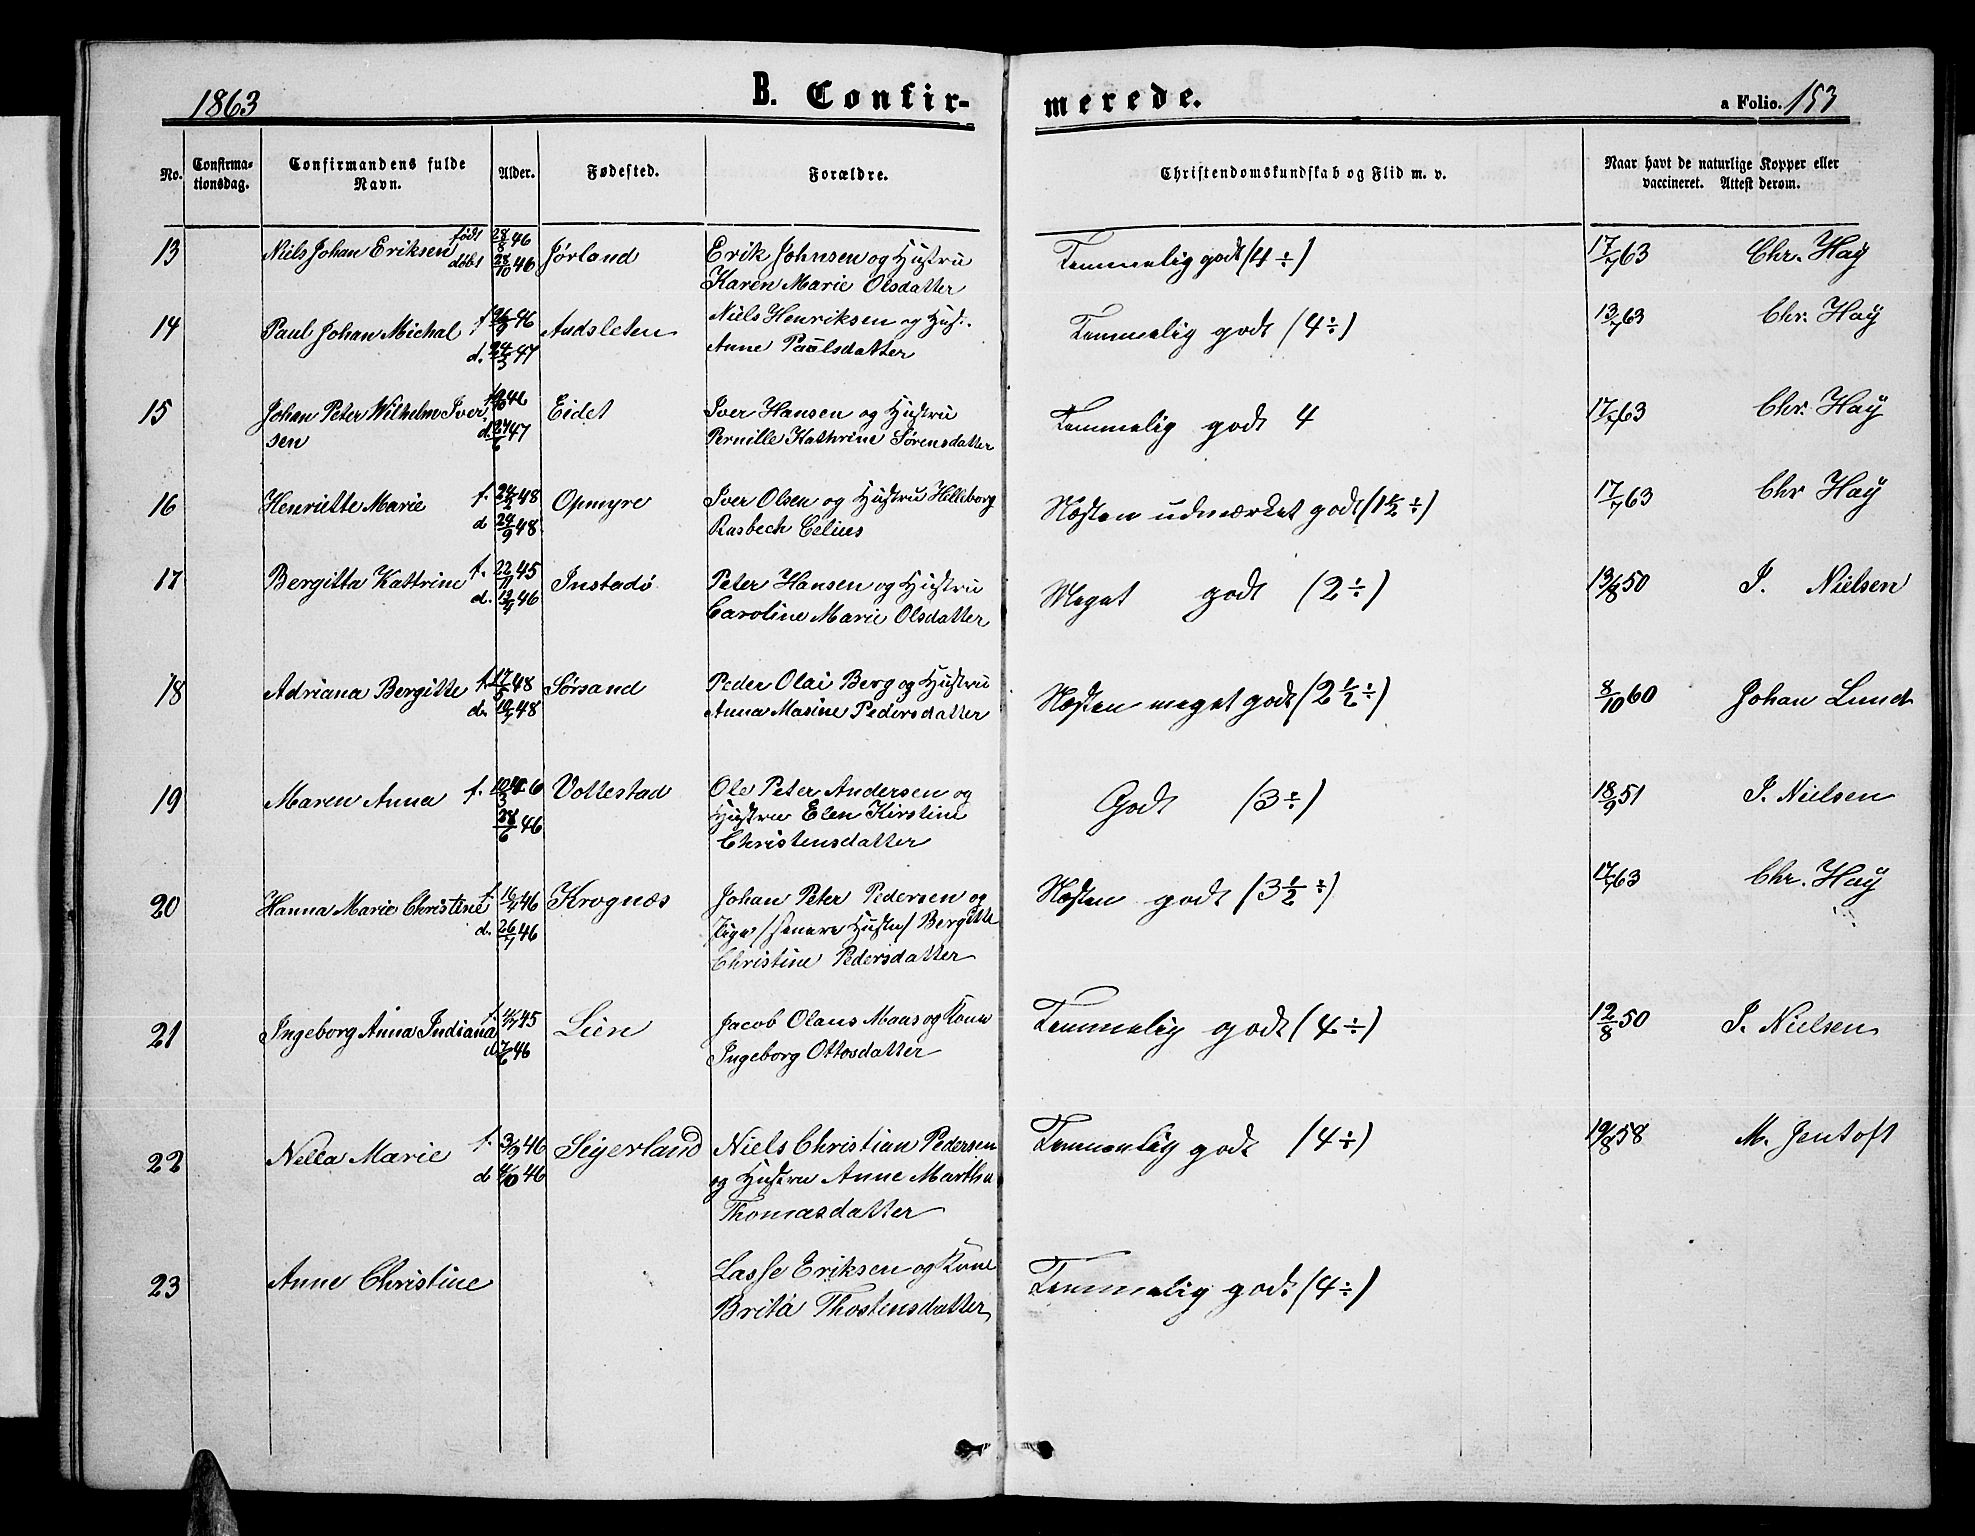 1863 B. Confir- merede. a Folio. 153
No. Confirma- tionsdag. Confirmandens fulde Navn. Alder. Fødested. Forældre. Christendomskundskab og Flid m. v. Naar havt de naturlige Kopper eller vaccineret. Attest derom.
13 Niels Johan Eriksen født 28/8 46 Jørland Erik Johnsen og Hustru Temmelig godt (4 ÷) 17/7 63 Chr. Høy
døbt 28/10 46 Karen Marie Olsdatter
14 Paul Johan Michal f 46 Andsleten Niels Henriksen og Hus: Temmelig godt (4 ÷) 13/7 63 Chr. Høy
d. 24/3 47 Anne Paulsdatter
15 Johan Peter Wilhelm Iver 46 Eidet Iver Hansen og Hustru Temmelig godt 4 17/7 63 Chr. Høy
sen d. 27/6 47 Pernille Kathrine Sørensdatter
16 Henriette Marie f. 24/2 48 Opmyre Iver Olsen og Hustru Helleborg Næsten udmærket godt (1 1/2 ÷) 17/7 63 Chr Høy
d 24/9 48 Rasbech Celius
17 Bergitta Kattrine f. 22/11 45 Instadø Peter Hansen og Hustru Meget godt (2 ÷) 13/8 50 I. Nielsen
d. 46 Caroline Marie Olsdatter
18 Adriana Bergitte f. 48 Sørsand Peder Olai Berg og Hustru Næsten meget godt (2 1/2 ÷) 8/10 60 Johan Lund
d. 48 Anna Masine Pedersdatter
19 Maren Anna f. 46 Vollestad Ole Peter Andersen og Godt (3 ÷) 18/9 51 I. Nielsen
46 Hustru Elen Kirstine
Christensdatter
20 Hanna Marie Christine f. 46 Krognæs Johan Peter Pedersen og Næsten godt (3 1/2 ÷) 17/7 63 Chr. Høy
d. 26/7 46 Pige /senere Hustru/ Bergitte
Christine Pedersdatter
21 Ingeborg Anna Indiana f. 45 Lien Jacob Olaus Maas og Kone Temmelig godt (4 ÷) 12/8 50 I. Nielsen
d 7/6 46 Ingeborg Ottosdatter
22 Nella Marie f. 3/9 46 Seyerland Niels Christian Pedersen Temmelig godt (4 ÷) 19/8 58 M. Jentoft
d 46 og Hustru Anne Martha
Thomasdatter
23 Anne Christine Lasse Eriksen og Kone Temmelig godt (4 ÷)
Brita Thostensdatter